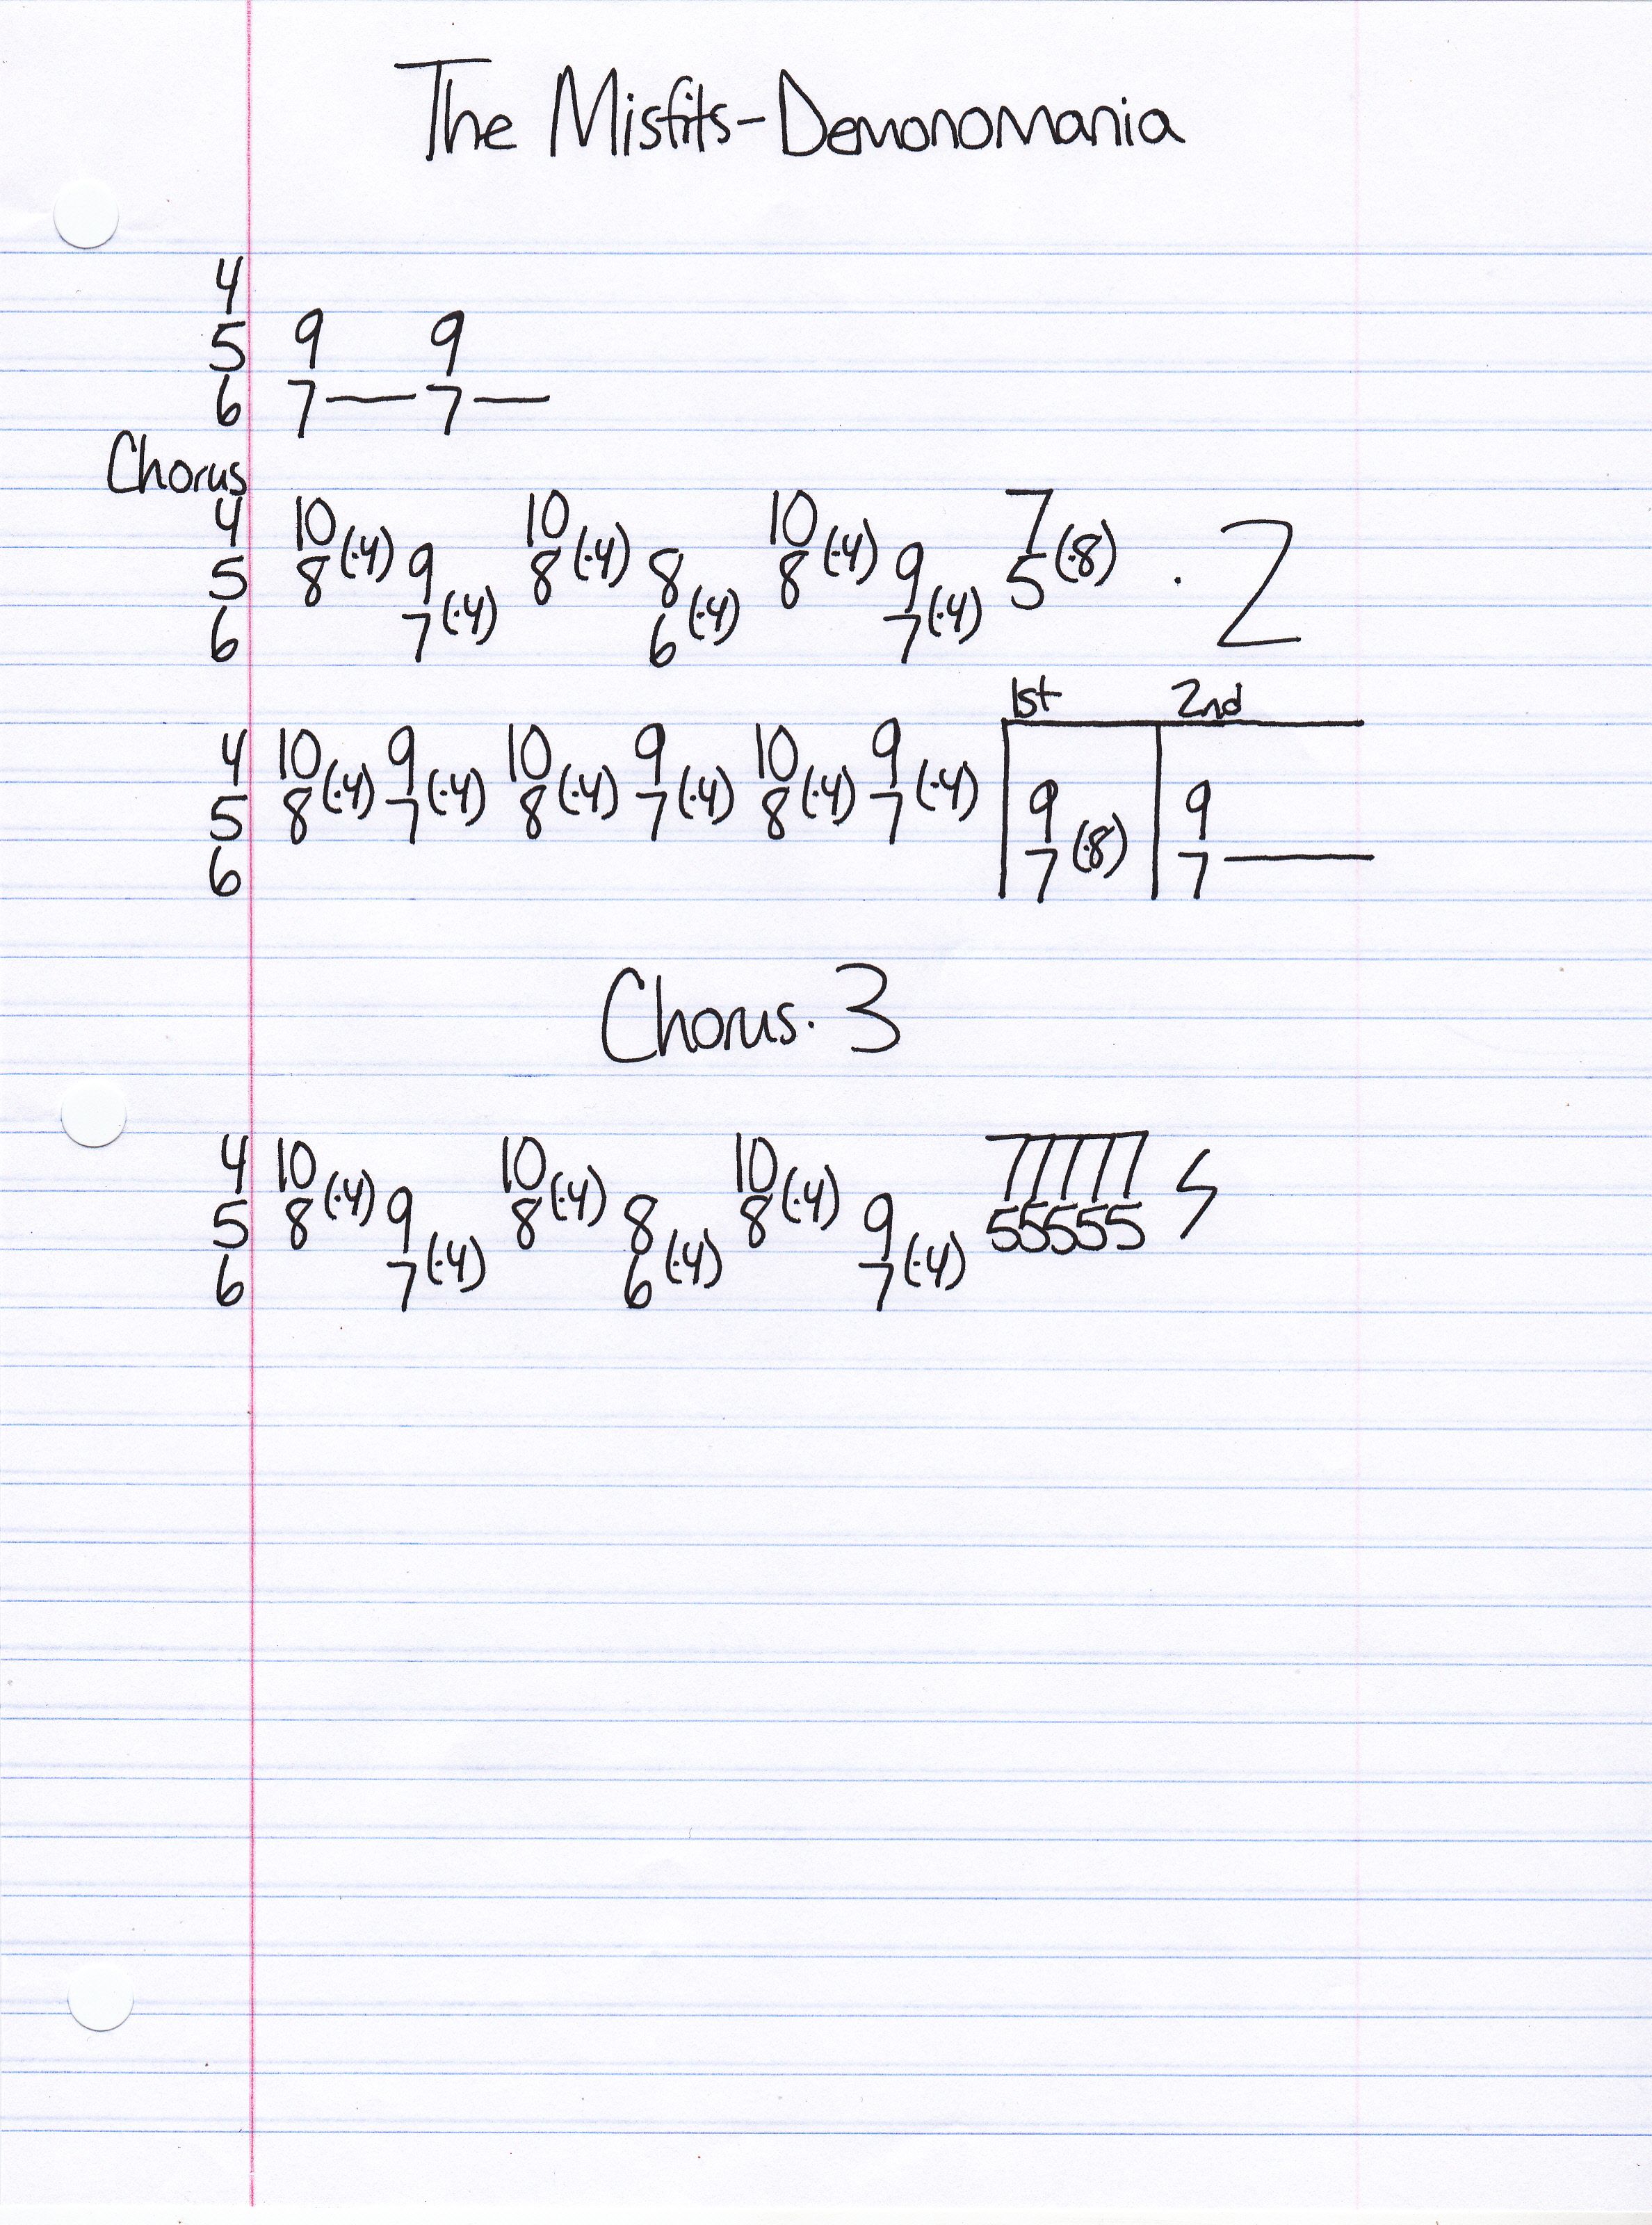 The Misfits-Demonomania
4
5 9 9
6 7— 7—
Chorus
4 10 10 10 7
5 8(·4) 9 8(·4) 8 8(·4) 9 5(·8) · 2
6 7(·4) 6(·4) 7(·4)
1st 2nd
4 10 9 10 9 10 9
5 8(·4) 7(·4) 8(·4) 7(·4) 8(·4) 7(·4) 9 9
6 7(·8) 7—
Chorus · 3
4 10 10 10 77777
5 8(·4) 9 8(·4) 8 8(·4) 9 55555
6 7(·4) 6(·4) 7(·4)